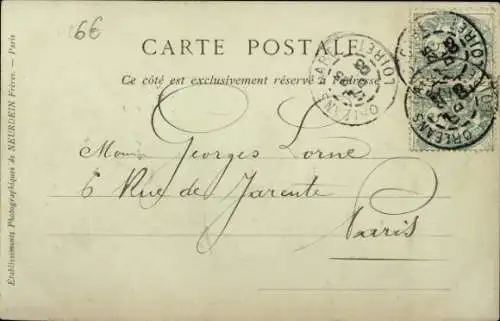 6€
CARTE POSTALE
Ce côté est exclusivement réservé à l'adresse
ORLÉANS GARE
LOIRET
ORLEANS
LOIRET
Georges Lorne
6 Rue de Jarente
Paris
Établissements Photographiques de NEURDEIN Frères. — Paris